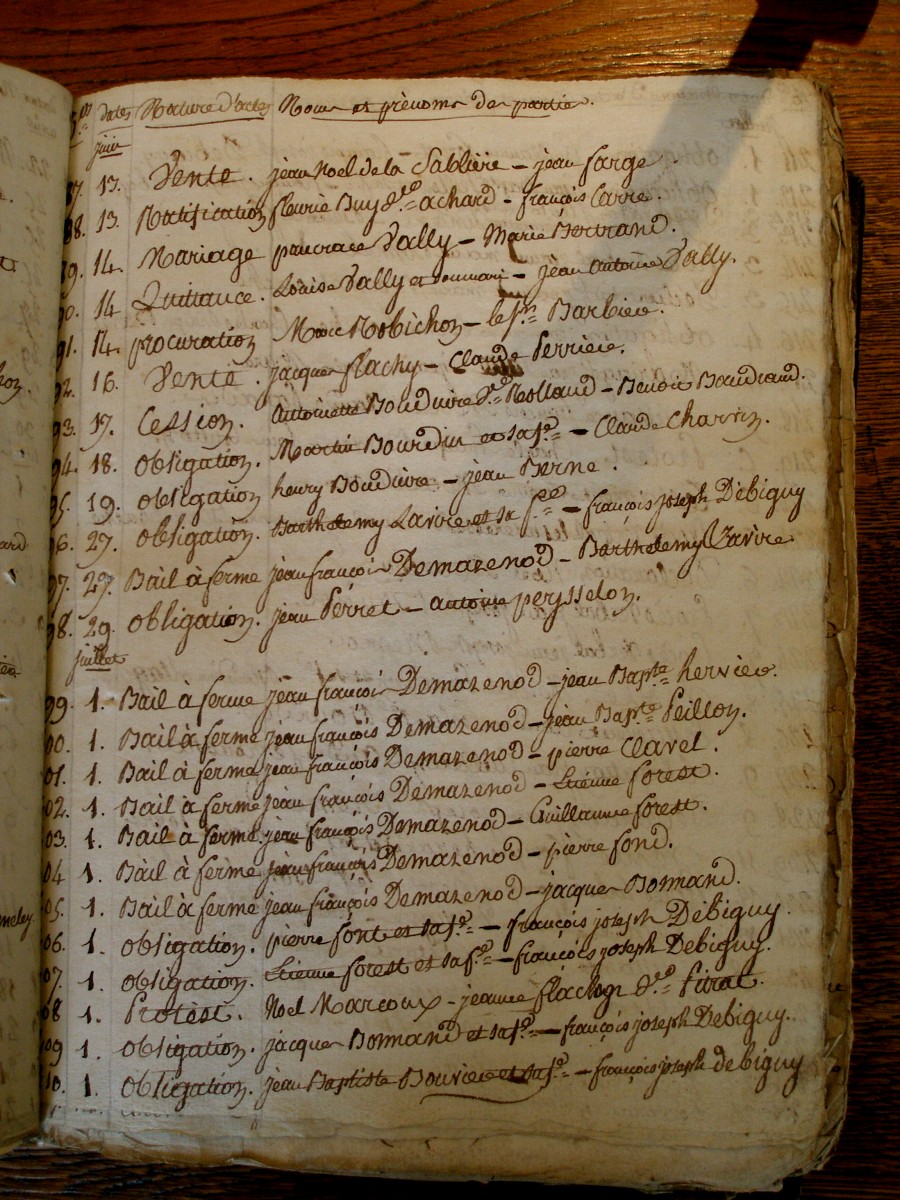 N.os dates Nature d'actes Noms et prénoms des parties.
juin
87. 13. Vente. jean Noel de la Sablière – jean farge
88. 13. Ratification fleurie Buy d.te achard – françois Carre.
89. 14. Mariage pancrace Vally – Marie Bertrand.
90. 14. Quittance. Louise Vally et – jean Antoine Vally.
91. 14. procuration Marc Robichon – le s.r Barbier.
92. 16. Vente. jacques flachy – Claude Perrier.
93. 17. Cession. Antoinette Bouduire d.te Rolland – Benoit Baudrand.
94. 18. obligation. Martin Bourdin et sa f.e – Claude Charvin.
95. 19. obligation henry Bouduire – jean Berne.
96. 27. obligation. Barthelemy Lavire et sa f.e – françois joseph Débiguy
97. 27. Bail à ferme jean françois Demazenod – Barthelemy Lavire
98. 29. obligation. jean Perret – antoine peysselon.
juillet
99. 1. Bail à ferme jean françois Demazenod – jean Bap.te hervier.
00. 1. Bail à ferme jean françois Demazenod – jean Bap.te Peillon.
01. 1. Bail à ferme jean françois Demazenod – pierre Clavel.
02. 1. Bail à ferme jean françois Demazenod – Etienne forest.
03. 1. Bail à ferme jean françois Demazenod – Guillaume forest.
04 1. Bail à ferme jean françois Demazenod – pierre fond.
05. 1. Bail à ferme jean françois Demazenod – jacques Bonnand.
06. 1. obligation. pierre font et sa f.e – françois joseph Débiguy.
07. 1. obligation. Etienne forest et sa f.e – françois joseph Debiguy.
08 1. Protèst. Noel Marcoux – jeanne flachon d.te Pitrat.
09 1. obligation. jacques Bonnand et sa f.e – françois joseph Debiguy.
10. 1. obligation. jean Baptiste Bouvier et sa f.e – françois joseph debiguy